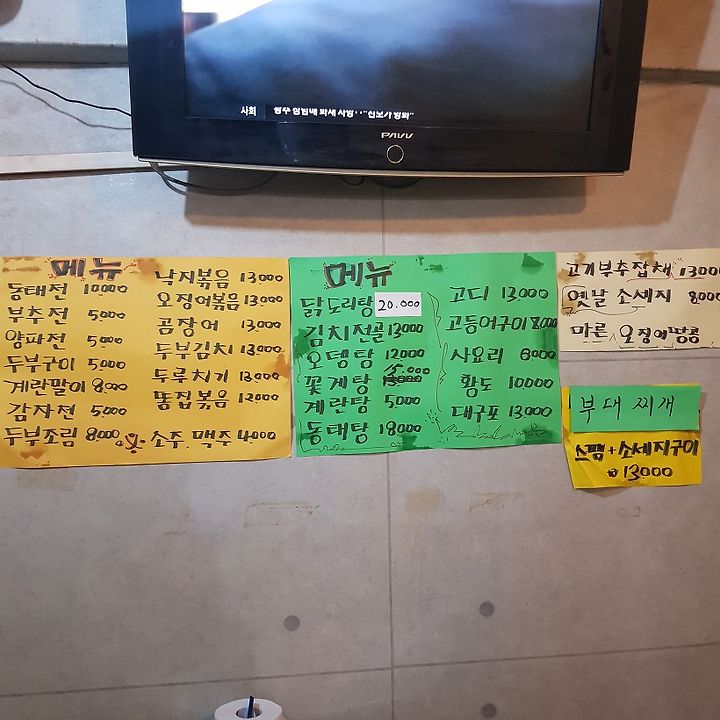 사회
PAVV
메뉴
동태전 10.000
부추전 5.000
양파전 5.000
두부구이 5.000
계란말이 8.000
감자전 5.000
두부조림 8.000
낙지볶음 13.000
오징어볶음 13.000
곰장어 13.000
두부김치 13.000
두루치기 13.000
똥집볶음 12.000
소주, 맥주 4.000
메뉴
닭도리탕 20.000
김치전골 13000
오뎅탕 12000
꽃게탕 15.000
계란탕 5.000
동태탕 18000
고디 13.000
고등어구이 8.000
사요리 8000
황도 10000
대구포 13.000
고기부추잡채 13000
옛날 소세지 8.000
마른 오징어땅콩
부대찌개
스팸+소세지구이
13.000